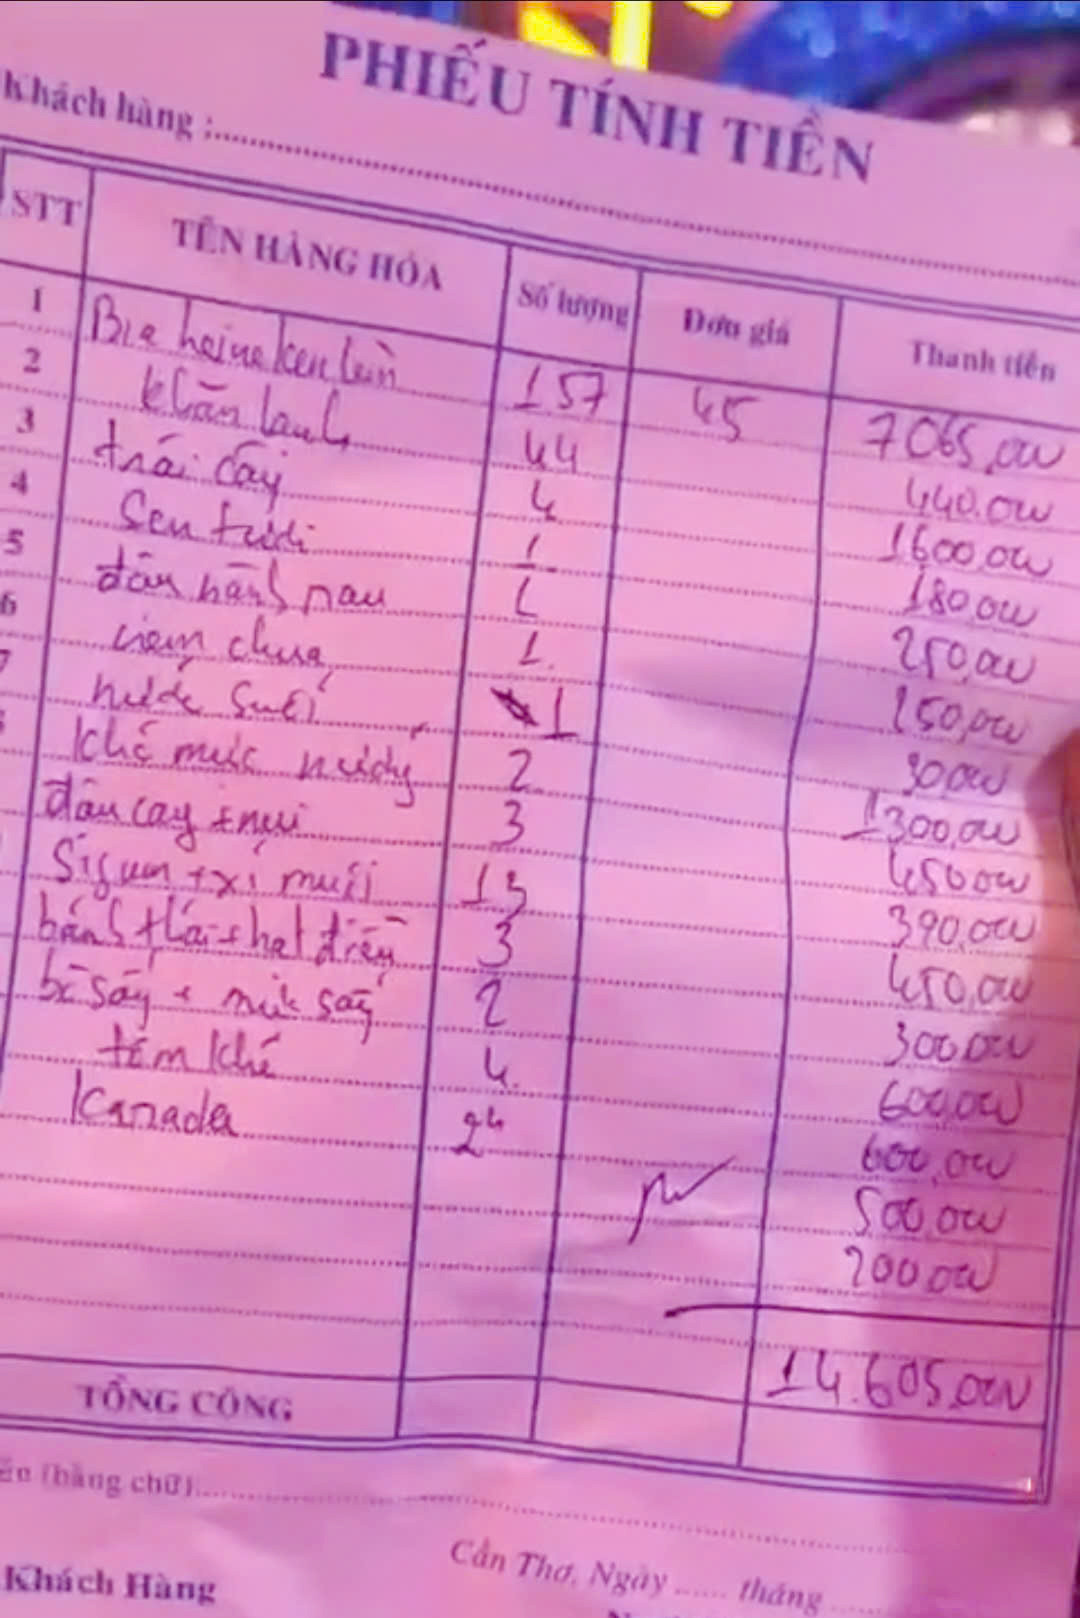 PHIẾU TÍNH TIỀN
Khách hàng :
STT TÊN HÀNG HÓA Số lượng Đơn giá Thành tiền
1 Bia heineken lùn 157 45 7065,000
2 khăn lạnh 44 440.000
3 trái cây 4 1600,000
4 Sen tươi 1 180,000
5 đậu hành nau 1 250,000
6 nem chua 1 250,000
7 nước suối 1 30,000
Khô mực nướng 2 1300,000
đậu cay + nui 3 450,000
Sigum + xí muội 13 390,000
bánh + hạt điều 3 450,000
bò sấy + mít sấy 2 300,000
tôm khô 4 600,000
Kanada 24 600,000
500,000
200,000
14.605,000
TỔNG CỘNG
(bằng chữ)
Cần Thơ, Ngày ...... tháng
Khách Hàng